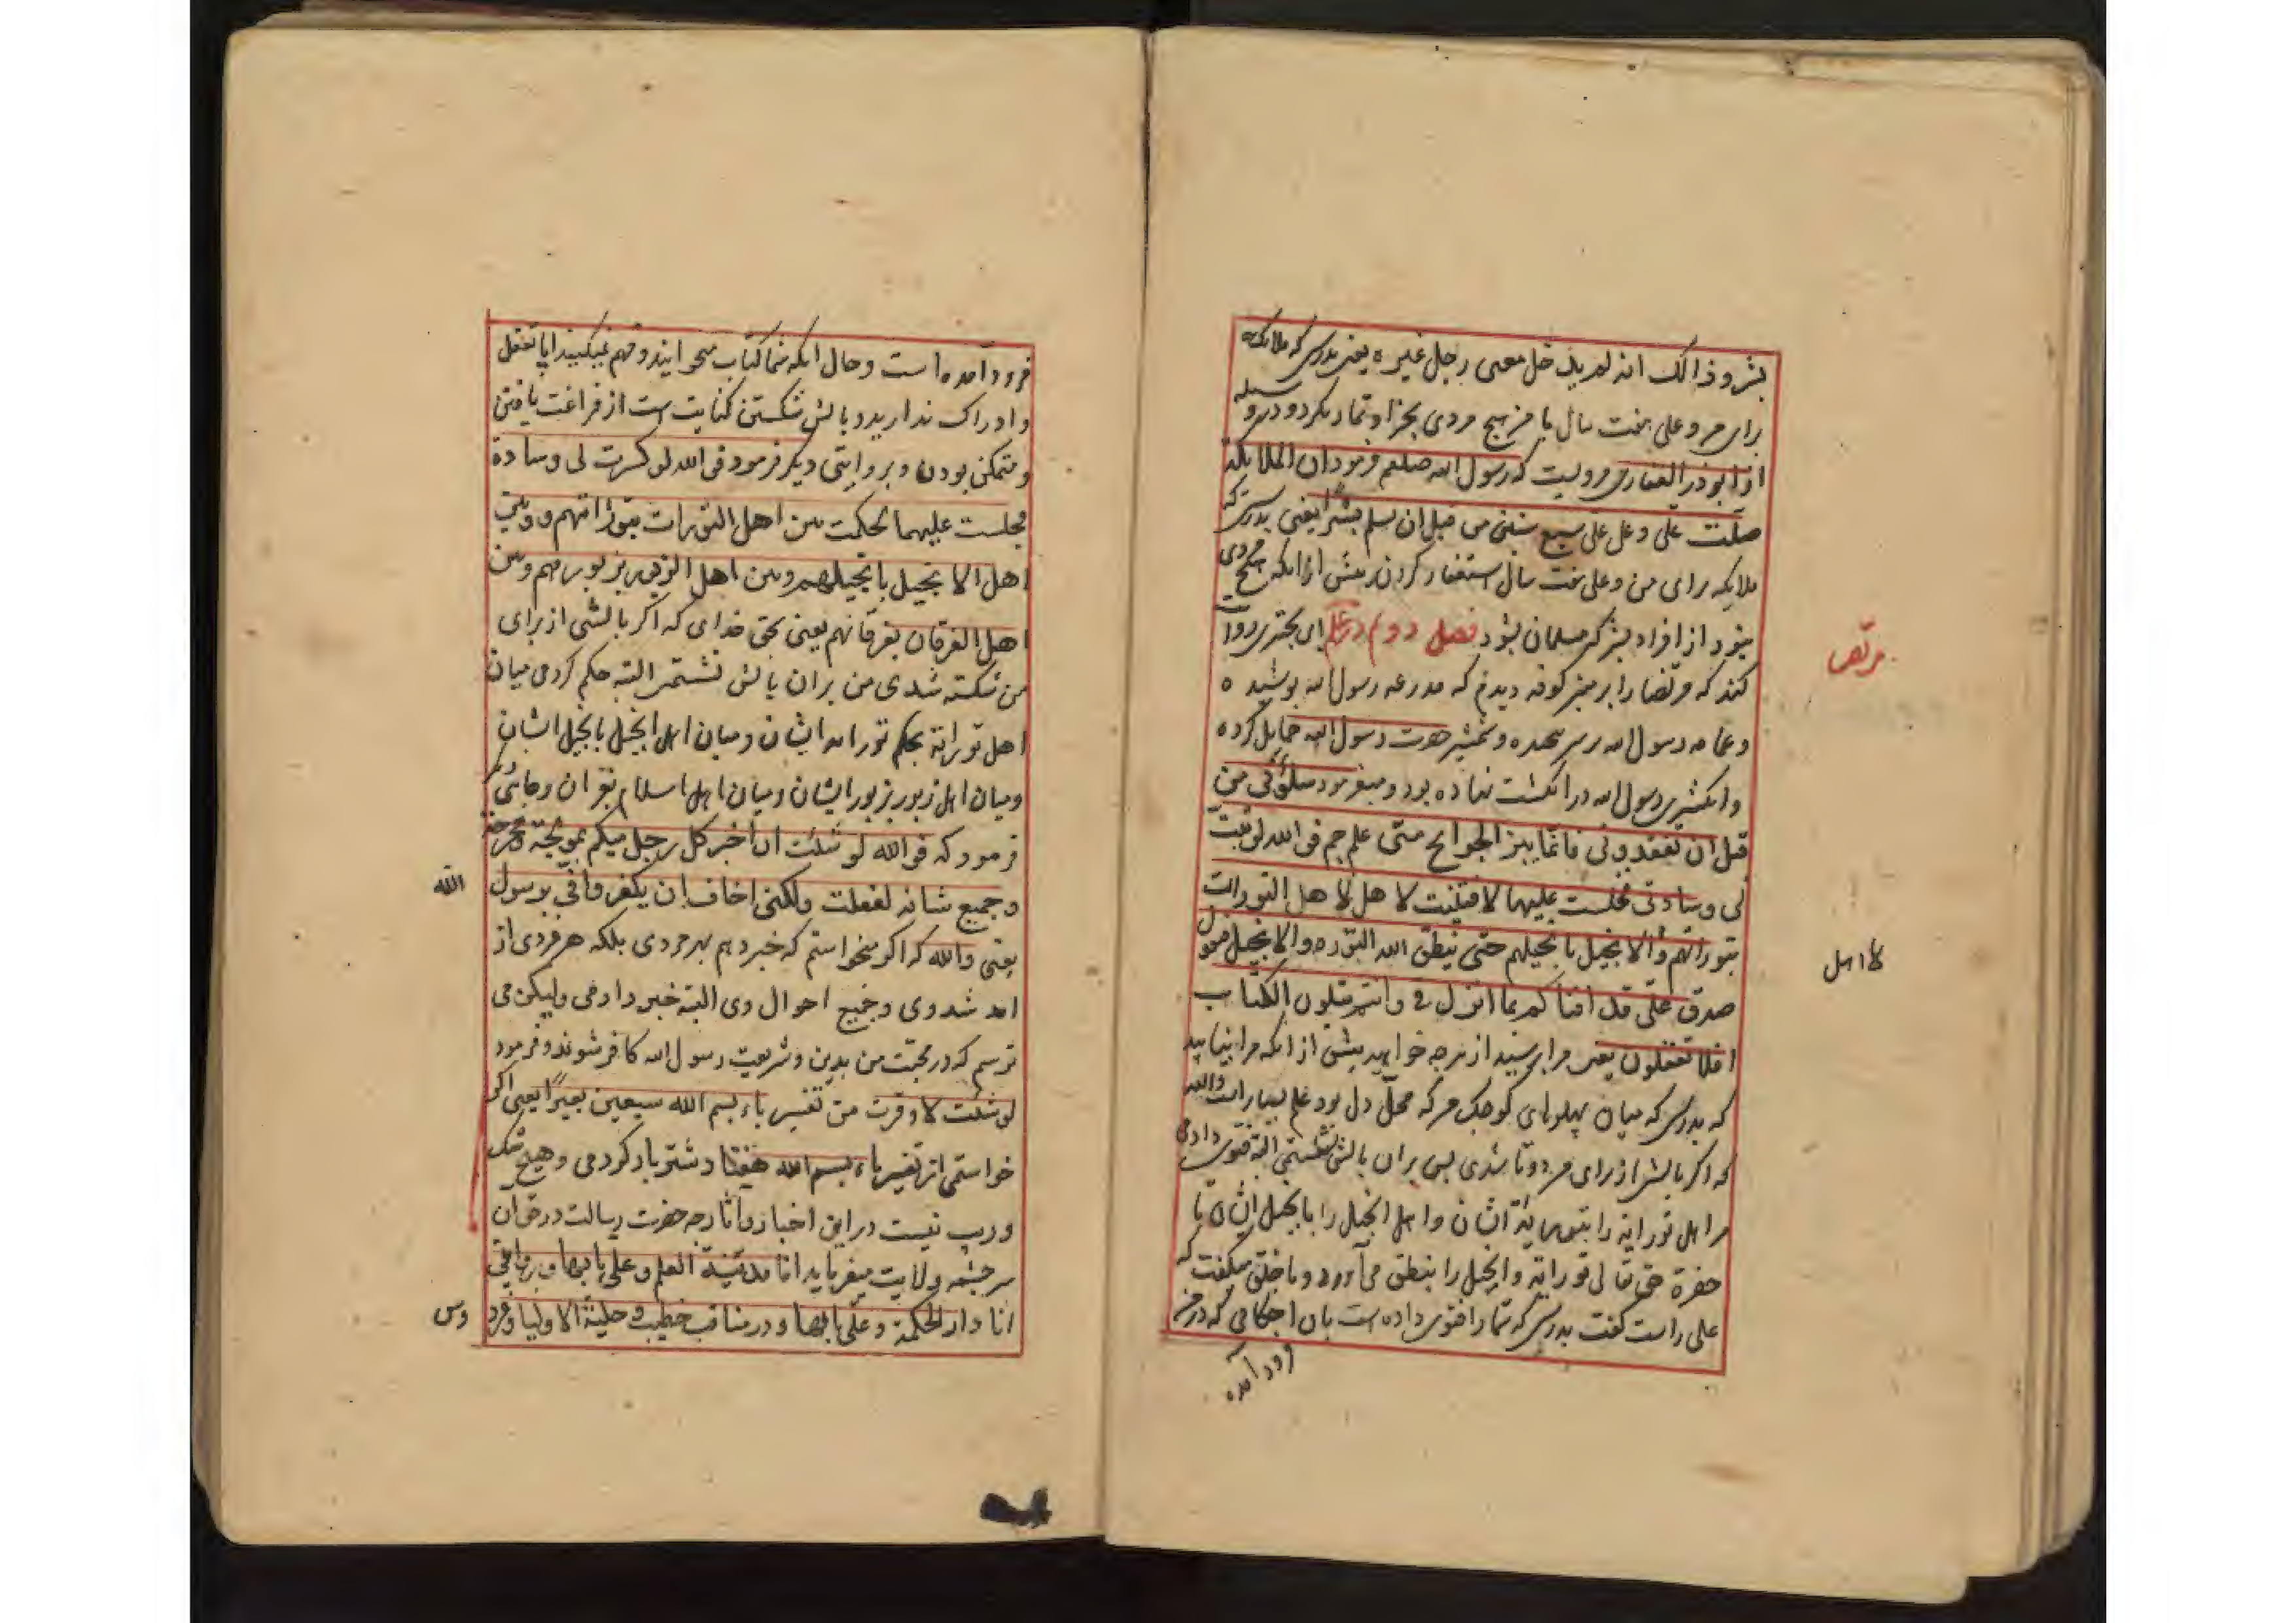 بشر و ذالک انه لم یدخل معی رجل غیره یعنی بدرستی که ملائکه
برای من و علی هفت سال با من هیچ مردی بجز او نماز نکرد و در وسیله
از ابوذر الغفاری مرویست که رسول الله صلعم فرمود ان الملایکة
صلت علی و علی علی سبع سنین من قبل ان یسلم بشرا یعنی بدرستی که
ملایکه برای من و علی هفت سال استغفار کردند پیش از انکه هیچ مردی
بنود از افراد بشر که مسلمان بشود فصل دوم در علم ابی بختری روایت
کند که مرتضا را بر منبر کوفه دیدم که مدرعه رسول الله پوشیده
و عمامه رسول الله بر سر نهاده و شمشیر حضرت رسول الله حمایل کرده
و انکشتری رسول الله در انکشت نهاده بود و میفرمود سلونی من
قبل ان تفقدونی فانما بین الجوانح منی علم جم فو الله لو ثنیت
لی وسادتی فجلست علیها لافتیت لا هل لا هل التورات
بتوراتهم و الانجیل بانجیلهم حتی ینطق الله التوره و الانجیل فتقول
صدق علی قد افتاکم بما انزل فی وانتم تتلون الکتاب
افلا تعقلون یعنی مرا بپرسید از هرچه خواهید پیش از انکه مرا نیابید
که بدرستی که میان پهلوهای کوچک من که محل دل بود علم بسیار است والله
که اکر بالش از برای من دو تا شدی پس بران بالش نشستمی البته فتوی دادمی
مر اهل توراة را بتوراة ایشان و اهل انجیل را بانجیل ایشان تا
حضرة حق تعالی توراة و انجیل را بنطق می آورد و با خلق میکفت که
علی راست کفت بدرستی که شما را فتوی داده است بان احکامی که در من
فرود آمده
مرتض
لا اهل
فرود آمده است و حال انکه شما کتاب میخوانید و فهم نمیکنید ایا تعقل
و ادراک ندارید و بالش شکستن کنایت است از فراغت یافتن
و متمکن بودن و بروایتی دیکر فرمود فو الله لو کسرت لی وسادة
فجلست علیها لحکمت بین اهل التورات بتوراتهم و وبین
اهل الانجیل بانجیلهم و بین اهل الزبور بزبورهم و بین
اهل الفرقان بفرقانهم یعنی بحق خدای که اکر بالشی از برای
من شکسته شدی من بران بالش نشستمی البته حکم کردمی میان
اهل توراة بحکم توراه ایشان و میان اهل انجیل بانجیل ایشان
و میان اهل زبور بزبور ایشان و میان اهل اسلام بقران و جائی دیکر
فرمود که فو الله لو شئت ان اخبر کل رجل منکم بمولجه و مخرجه
و جمیع شانه لفعلت ولکنی اخاف ان یکفروا فی برسول
الله
یعنی والله که اکر میخواستم که خبر دهم بهر مردی بلکه هر فردی از
امد شد وی و جمیع احوال وی البته خبر دادمی ولیکن می
ترسم که در محبت من بدین و شریعت رسول الله کافر شوند و فرمود
لو شئت لاوقرت من تفسیر باء بسم الله سبعین بعیرا یعنی اکر
خواستمی از تفسیر باء بسم الله هفتاد شتر بار کردمی و هیچ شک
و ریب نیست در این اخبار و آثار چه حضرت رسالت در حق ان
سرچشمه ولایت میفرماید انا مدینة العلم و علی بابها و بروایتی
انا دار الحکمة و علی بابها و در مناقب خطیب و حلیة الاولیا و فرد
وس